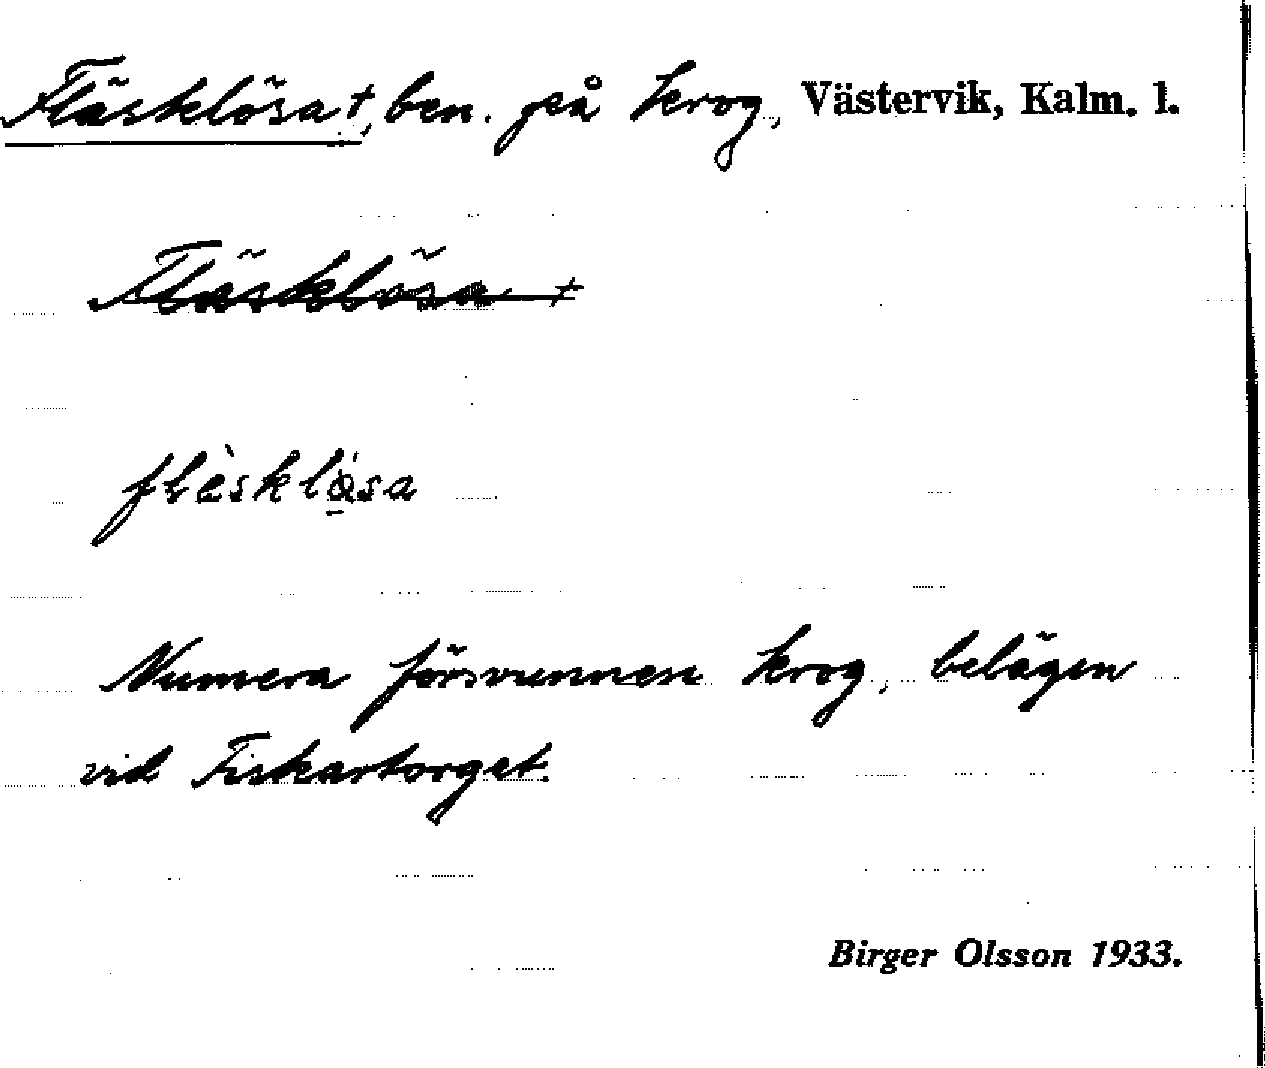 Fläsklösa †, ben. på krog, Västervik, Kalm. l.
Fläsklösa †
flèsklö̀sa
Numera försvunnen krog, belägen
vid Fiskartorget.
Birger Olsson 1933.